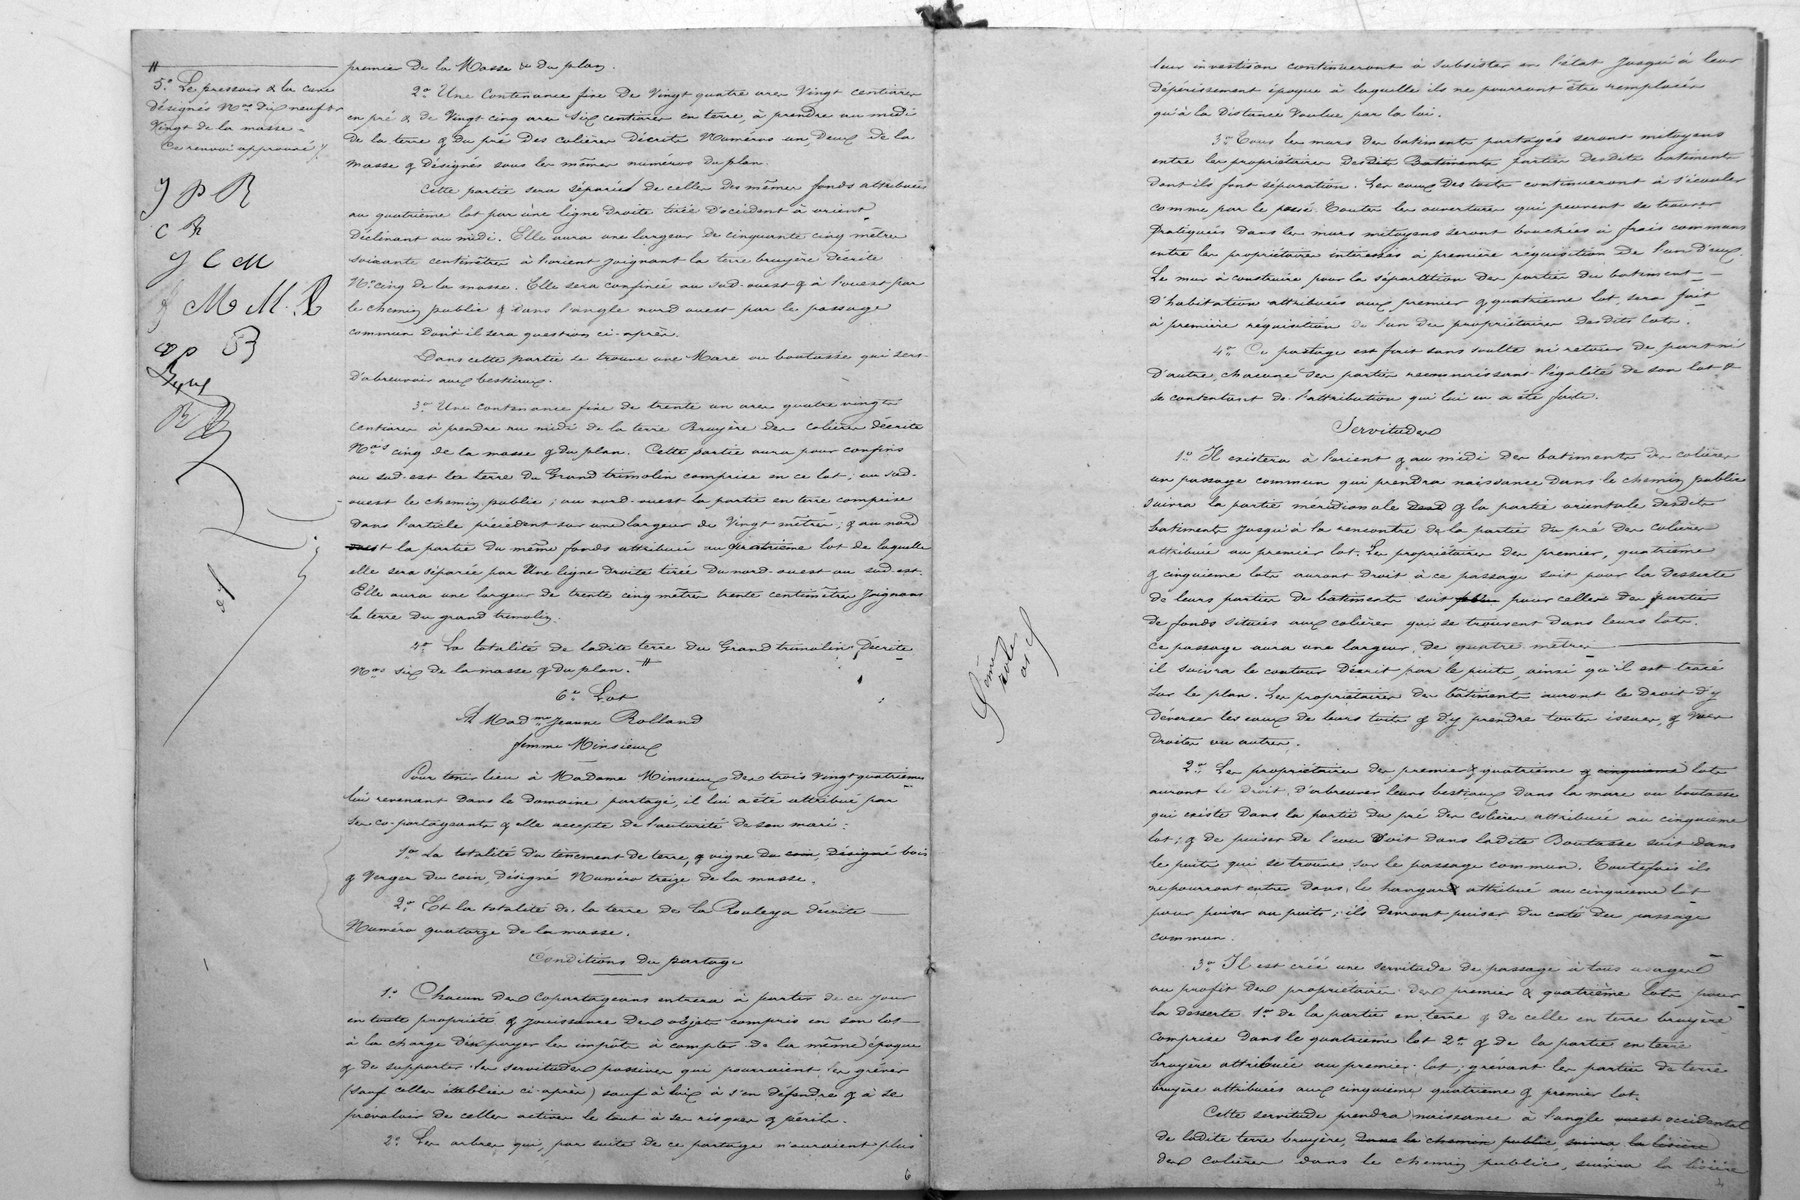 5° Le pressoir & la cuve
désignés Nos Dix neuf &
Vingt de la masse.
Ce renvoi approuvé
J P R
C R
J C M
M M. R
B
premier de la Masse & du plan.
2° Une Contenance fixe De Vingt quatre ares Vingt centiares
en pré & de Vingt cinq ares Six centiares en terre, à prendre au midi
De la terre & du pré Des colières Décrits Numéros un, Deux de la
masse & désignés sous les mêmes numéros du plan.
Cette partie sera séparée de celles Des mêmes fonds attribuées
au quatrième lot par une ligne Droite tirée D'occident à orient
Déclinant au midi. Elle aura une largeur De cinquante cinq mètres
soixante centimètres à l'orient joignant la terre bruyère décrite
No cinq de la masse. Elle sera confinée au sud-ouest & à l'ouest par
le chemin public & Dans l'angle nord ouest par le passage
commun Dont il sera question ci-après.
Dans cette partie se trouve une Mare ou boutasse qui sert
D'abreuvoir aux bestiaux.
3° Une contenance fixe de trente un ares quatre vingts
Centiares à prendre au midi de la terre Bruyère des colières décrite
Nos cinq de la masse & du plan. Cette partie aura pour confins
au sud-est la terre du Grand trimolin comprise en ce lot; au sud-
ouest le chemin public; au nord-ouest la partie en terre comprise
Dans l'article précédent sur une largeur de Vingt mètres; & au nord
est la partie du même fonds attribuée au quatrième lot de laquelle
elle sera séparée par Une ligne droite tirée Du nord-ouest au sud-est.
Elle aura une largeur de trente cinq mètres trente centimètres Joignant
la terre du grand trimolin.
4° La totalité de ladite terre du Grand trimolin Décrite
Nos six de la masse & du plan.
6e Lot
A Madme Jeanne Rolland
femme Minsieux
Pour tenir lieu à Madame Minsieux des trois vingt quatrièmes
lui revenant Dans le Domaine partagé, il lui a été attribué par
ses co-partageants & elle accepte De l'autorité de son mari:
1° La totalité Du tènement de terre, & vigne du coin, désigné bois
& verger Du coin, désigné Numéro treize de la masse.
2° Et la totalité de la terre de la Rouleya décrite
Numéro quatorze de la masse.
Conditions du partage
1° Chacun des copartageans entrera à partir de ce jour
en toute propriété & jouissance Des objets compris en son lot
à la charge D'en payer les impôts à compter de la même époque
& de supporter les servitudes passives qui pourraient les gréver
(sauf celles établies ci-après) sauf à eux à s'en défendre & à se
prévaloir de celles actives le tout à ses risques & périls.
2° Les arbres qui, par suite de ce partage n'auraient plus
6
leur investison continueront à subsister en l'état jusqu'à leur
dépérissement époque à laquelle ils ne pourront être remplacés
qu'à la distance Voulue par la loi.
3° Tous les murs des batiments partagés seront mitoyens
entre les propriétaires Desdits Batiments parties desdits batiments
dont ils font séparation. Les eaux Des toits continueront à s'écouler
comme par le passé. Toutes les ouvertures qui peuvent se trouver
pratiquées dans les murs mitoyens seront bouchées à frais communs
entre les propriétaires intéressés à première réquisition de l'un d'eux.
Le mur à construire pour la séparation des parties du batiment
D'habitation attribuées aux premier & quatrième lot, sera fait
à première réquisition de l'un des propriétaires desdits lots.
4° Ce partage est fait sans soulte ni retour de part ni
D'autre, chacune des parties reconnaissant l'égalité de son lot &
se contentant de l'attribution qui lui en a été faite.
Servitudes
1° Il existera à l'orient & au midi des batiments des colières
un passage commun qui prendra naissance dans le chemin public
suivra la partie méridionale & la partie orientale desdits
batiments jusqu'à la rencontre de la partie du pré des colières
attribuée au premier lot. Les propriétaires des premier, quatrième
& cinquième lots auront Droit à ce passage soit pour la desserte
de leurs parties de batiments soit pour celles des parties
de fonds situées aux colières qui se trouvent dans leurs lots.
Ce passage aura une largeur de quatre mètres
il suivra le contour Décrit par le puits, ainsi qu'il est tracé
sur le plan. Les propriétaires des bâtiments auront le Droit d'y
déverser les eaux de leurs toits & d'y prendre toutes issues, & vues
droites ou autres.
2° Les propriétaires des premier & quatrième & cinquième lots
auront le droit d'abreuver leurs bestiaux dans la mare ou boutasse
qui existe Dans la partie du pré des colières attribuée au cinquième
lot; & de puiser de l'eau soit dans ladite Boutasse soit dans
le puits qui se trouve sur le passage commun. Toutefois ils
ne pourront entrer dans le hangar attribué au cinquième lot
pour puiser au puits; ils devront puiser du coté du passage
commun.
3° Il est créé une servitude de passage à tous usages
au profit des propriétaires des premier & quatrième lots pour
la desserte 1° de la partie en terre & de celle en terre bruyère
comprise Dans le quatrième lot 2° & de la partie en terre
bruyère attribuée au premier lot, grévant les parties de terre
bruyère attribuées aux cinquième quatrième & premier lot.
Cette servitude prendra naissance à l'angle ouest occidental
de ladite terre bruyère, dans le chemin public, suivra la lisière
des colières dans le chemin public, suivra la lisière